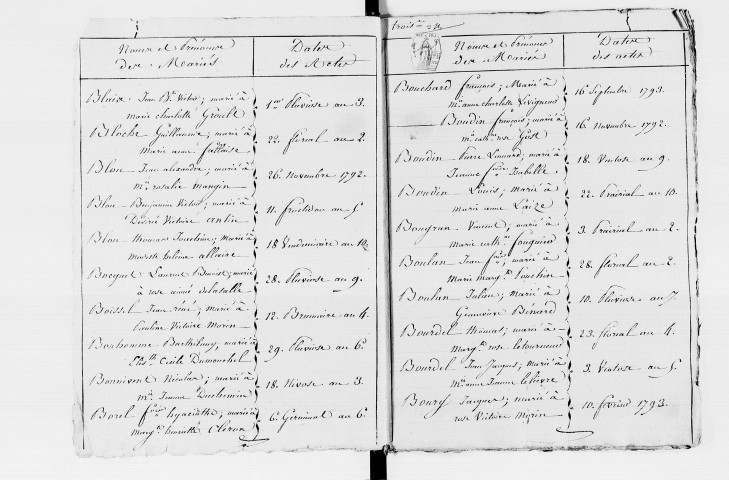 Noms et Prénoms
des Mariés
Dates
des Actes
Blaix Jean Bte Victor; marié à
marie charlotte Groult
1er Pluviose an 3.
Bloche Guillaume; marié à
Marie anne fallaise
22. floréal an 2.
Blon Jean alexandre; marié à
Mie rosalie mangin
26. Novembre 1792.
Blon Benjamin Victor; marié à
Désiré Victoire antin
11. fructidor an 5.
Blon thomas Joachim; marié à
Marthe helene allaire
18 Vendemiaire an 10.
Bocquet Laurent Benoist; marié
à rose aimé delasalle
28. Pluviose an 9.
Boissel Jean rené; marié à
Pauline Victoire Morin
12. Brumaire an 4.
Bonhomme Barthelemy; marié à
Cécile Dumouchel
29. Pluviose an 6.
Bonnivent Nicolas; marié à
Mie Jeanne Duchemin
18. Nivose an 3.
Borel hyacinthe; marié à
marge henriette Cleroux
6. Germinal an 6.
trois
Noms et Prénoms
des Mariés
Dates
des actes
Bouchard françois; Marié à
Mie anne charlotte
16 Septembre 1793.
Boudin françois; marié à
mie cathne rose Gost
16. Novembre 1792.
Boudin Pierre Linnard; marié à
Jeanne Isabelle
18. Ventose an 9.
Boudin Louis; marié à
marie anne Laize
22. Prairial an 10.
Bougran Vincent; marié à
marie cathne
3. Prairial an 2.
Boulan Jean fois; marié à
Marie marge Bouchin
28. floréal an 2.
Boulan Julien; marié à
Genevieve Benard
10. Pluviose an 7.
Bourdel thomas; marié à
Marge rose letourneur
23. floréal an 4.
Bourdel Jean Jacques; marié à
Mie anne Jeanne lelievre
3. Ventose an 5.
Boury Jacques; marié à
rose Victoire Morin
10. fevrier 1793.